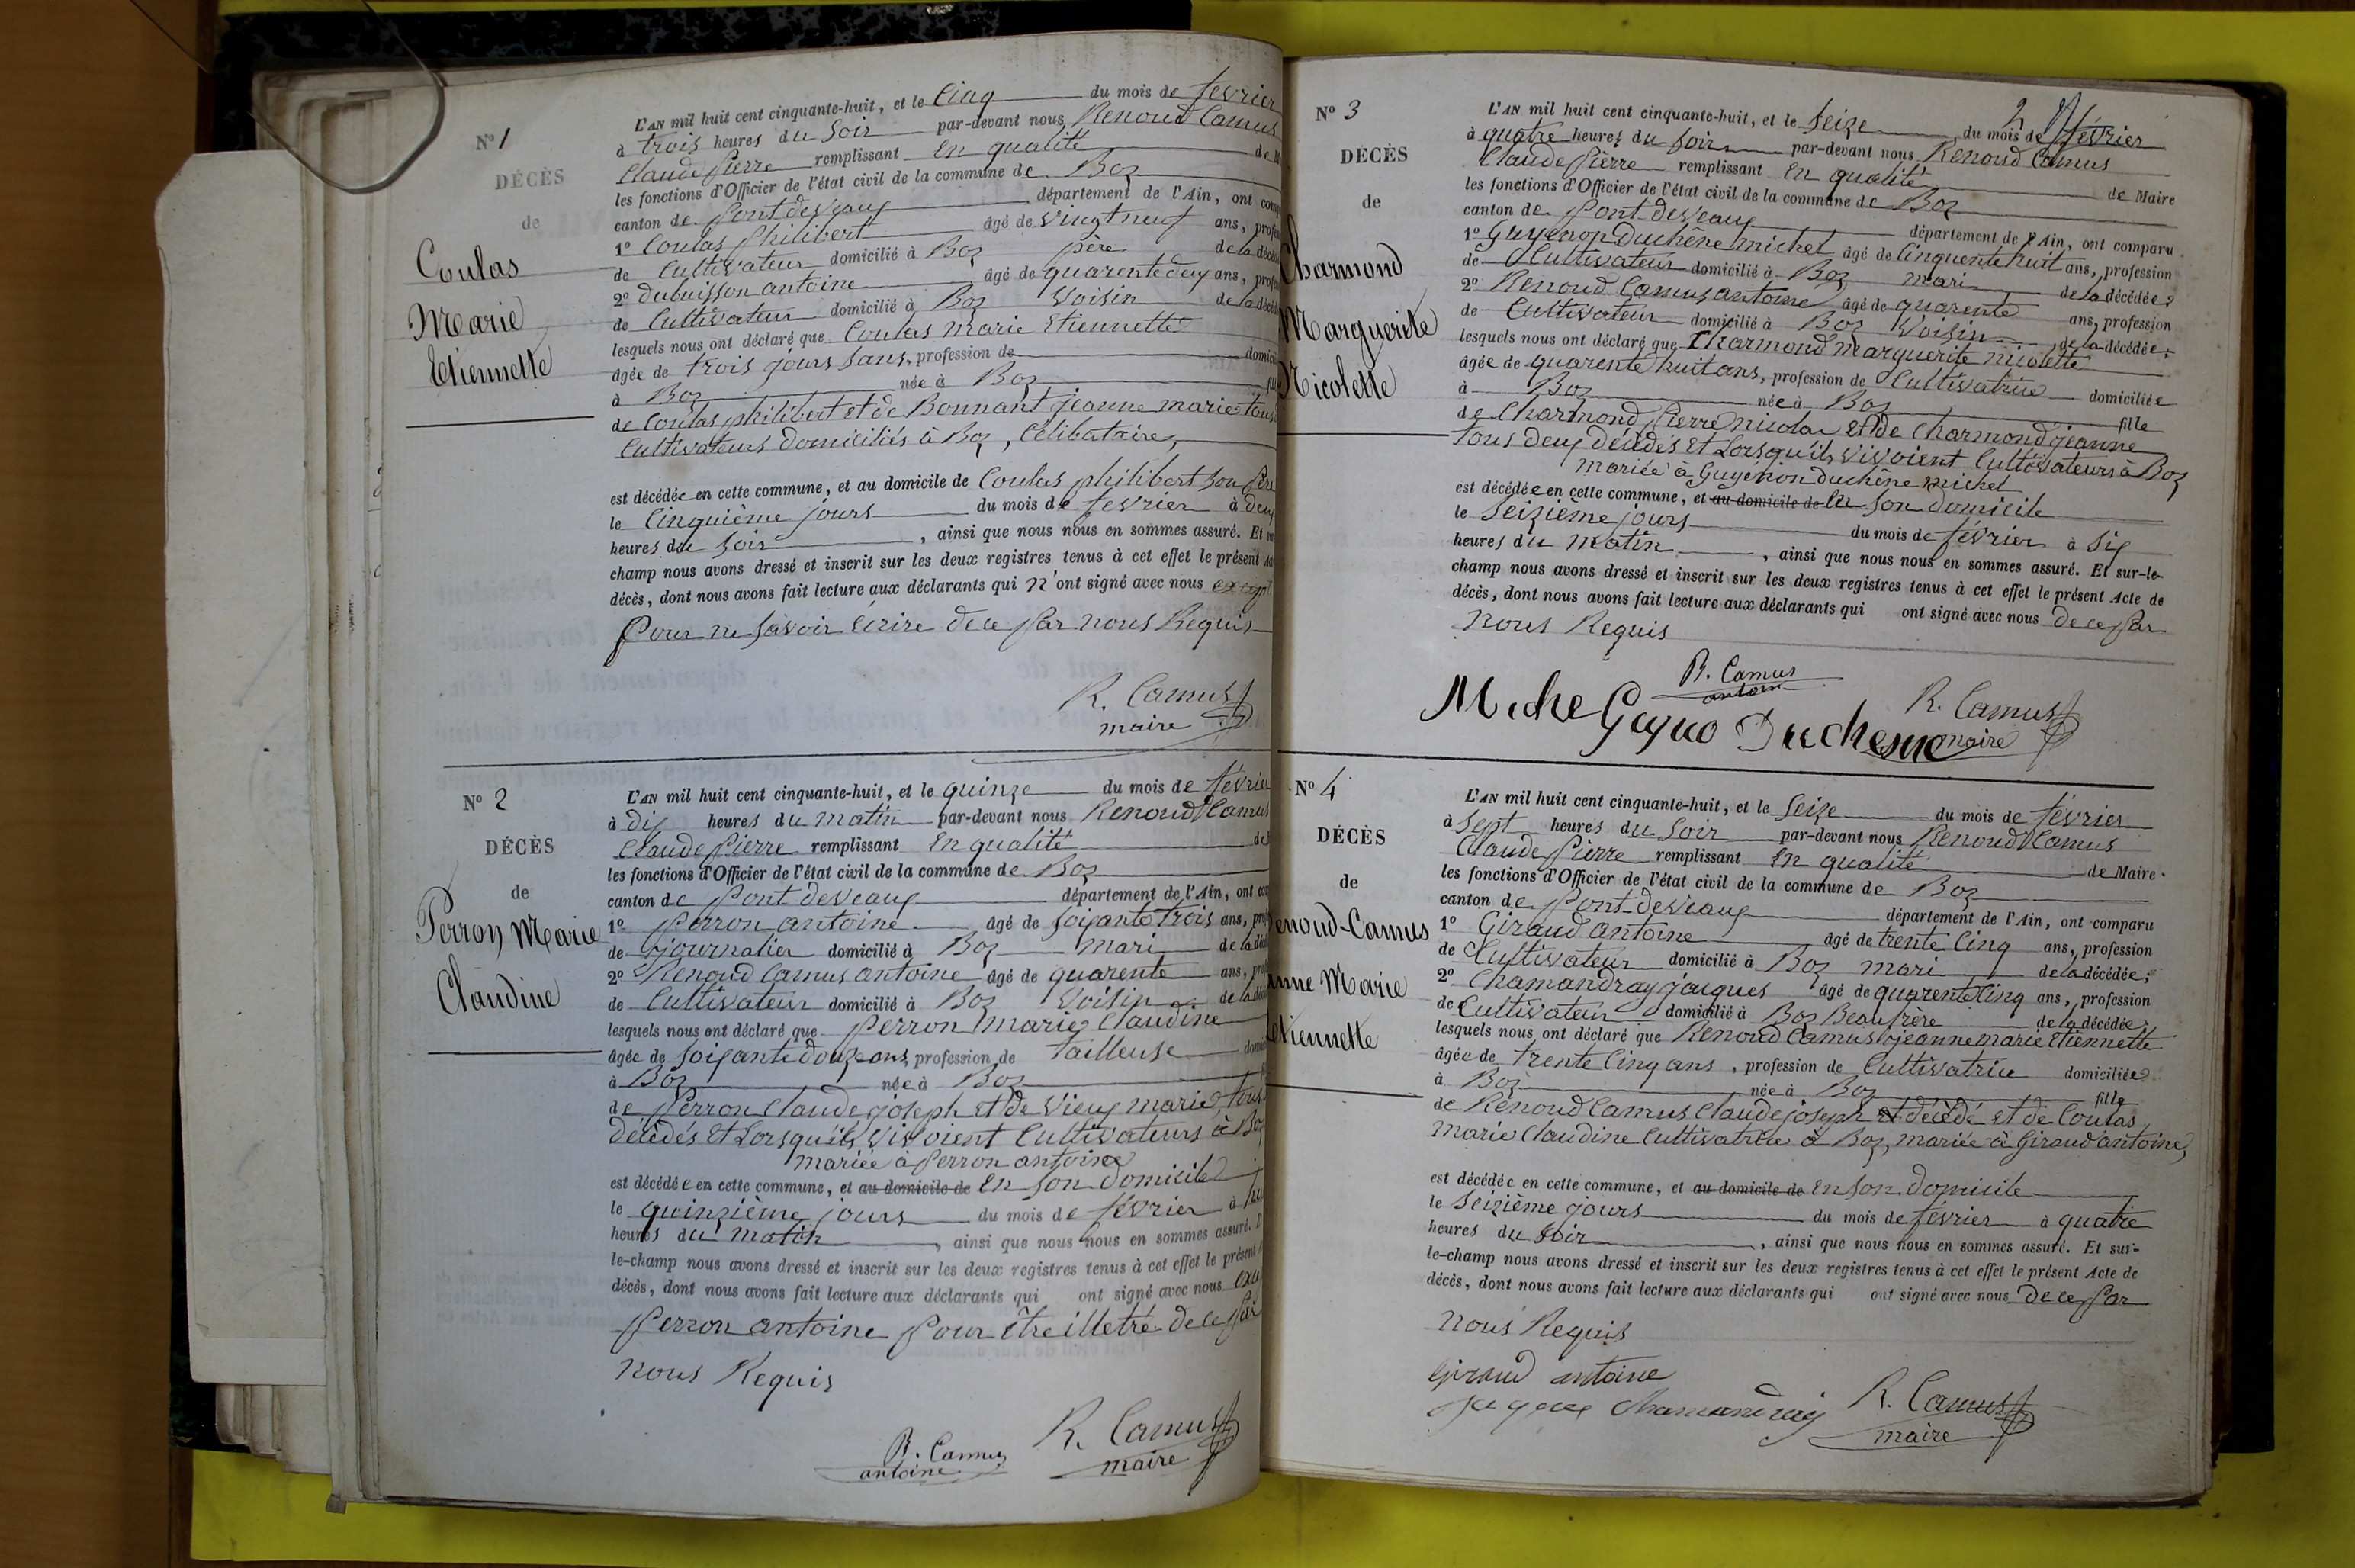 N° 1
DÉCÈS
de
Coulas
Marie
Etiennette
L'AN mil huit cent cinquante-huit, et le Cinq du mois de février
à trois heures du Soir par-devant nous Renoud Camus
Claude Pierre remplissant En qualité de
les fonctions d'Officier de l'état civil de la commune de Boz
canton de Pont deVeaux département de l'Ain, ont
1° Coulas Philibert âgé de vingt neuf ans,
de Cultivateur domicilié à Boz père de la
2° dubuisson antoine âgé de quarente deux ans,
de Cultivateur domicilié à Boz Voisin de la
lesquels nous ont déclaré que Coulas Marie Etiennette
âgée de trois jours sans, profession de
à Boz née à Boz
de Coulas philibert et de Bonnant jeanne marie tous
Cultivateurs domiciliés à Boz, Célibataire,
est décédée en cette commune, et au domicile de Coulas philibert son père
le Cinquième jours du mois de février à deux
heures du soir, ainsi que nous nous en sommes assuré. Et
champ nous avons dressé et inscrit sur les deux registres tenus à cet effet le présent
décès, dont nous avons fait lecture aux déclarants qui n'ont signé avec nous
Pour ne Savoir Ecrire de ce par nous Requis
R. Camus
maire
N° 2
DÉCÈS
de
Perron Marie
Claudine
L'AN mil huit cent cinquante-huit, et le quinze du mois de février
à dix heures du matin par-devant nous Renoud Camus
Claude Pierre remplissant En qualité de
les fonctions d'Officier de l'état civil de la commune de Boz
canton de Pont deVeaux département de l'Ain, ont
1° Perron antoine âgé de Soixante trois ans,
de journalier domicilié à Boz mari de la
2° Renoud Camus antoine âgé de quarente ans,
de Cultivateur domicilié à Boz Voisin de la
lesquels nous ont déclaré que Perron Marie Claudine
âgée de Soixante douze ans, profession de tailleuse
à Boz née à Boz
de Perron Claude joseph et de Vieux marie tous
décédés et Lorsqu'ils vivoient Cultivateurs à Boz
mariée à Perron antoine
est décédée en cette commune, et au domicile de En son domicile
le quinzième jours du mois de février à
heures du matin, ainsi que nous nous en sommes assuré.
le-champ nous avons dressé et inscrit sur les deux registres tenus à cet effet le présent
décès, dont nous avons fait lecture aux déclarants qui ont signé avec nous
Perron antoine Pour être illetré de ce par
nous Requis
R. Camus
antoine
R. Camus
maire
2
N° 3
DÉCÈS
de
Charmond
Marguerite
Nicolette
L'AN mil huit cent cinquante-huit, et le Seize du mois de février
à quatre heures du soir par-devant nous Renoud Camus
Claude Pierre remplissant En qualité de Maire
les fonctions d'Officier de l'état civil de la commune de Boz
canton de Pont-deVeaux département de l'Ain, ont comparu
1° Guyenon Duchêne michel âgé de Cinquente huit ans, profession
de Cultivateur domicilié à Boz mari de la décédée
2° Renoud Camus antoine âgé de quarente ans, profession
de Cultivateur domicilié à Boz Voisin de la décédée,
lesquels nous ont déclaré que Charmond Marguerite nicolette
âgée de quarente huit ans, profession de Cultivatrice domiciliée
à Boz née à Boz fille
de Charmond Pierre nicolas et de Charmond jeanne
tous deux décédés et Lorsqu'ils vivoient Cultivateurs à Boz
mariée à Guyenon duchêne michel
est décédée en cette commune, et au domicile de En son domicile
le Seizième jours du mois de février à Six
heures du matin, ainsi que nous nous en sommes assuré. Et sur-le-
champ nous avons dressé et inscrit sur les deux registres tenus à cet effet le présent Acte de
décès, dont nous avons fait lecture aux déclarants qui ont signé avec nous de ce par
nous Requis
R. Camus
antoin
R. Camus
maire
Miche Guyno Duchesne
N° 4
DÉCÈS
de
enoud-Camus
anne Marie
Etiennette
L'AN mil huit cent cinquante-huit, et le Seize du mois de février
à Sept heures du Soir par-devant nous Renoud Camus
Claude Pierre remplissant En qualité de Maire
les fonctions d'Officier de l'état civil de la commune de Boz
canton de Pont-deVeaux département de l'Ain, ont comparu
1° Giraud antoine âgé de trente Cinq ans, profession
de Cultivateur domicilié à Boz mari de la décédée;
2° Chamandray jacques âgé de quarente Cinq ans, profession
de Cultivateur domicilié à Boz Beaufrère de la décédée,
lesquels nous ont déclaré que Renoud Camus jeanne marie Etiennette
âgée de trente Cinq ans, profession de Cultivatrice domiciliée
à Boz née à Boz fille
de Renoud Camus Claude joseph et décédé et de Coulas
Marie Claudine Cultivatrice à Boz, mariée à Giraud antoine,
est décédée en cette commune, et au domicile de En son domicile
le Seizième jours du mois de février à quatre
heures du Soir, ainsi que nous nous en sommes assuré. Et sur-
le-champ nous avons dressé et inscrit sur les deux registres tenus à cet effet le présent Acte de
décès, dont nous avons fait lecture aux déclarants qui ont signé avec nous de ce par
nous Requis
Giraud antoine
R. Camus
maire